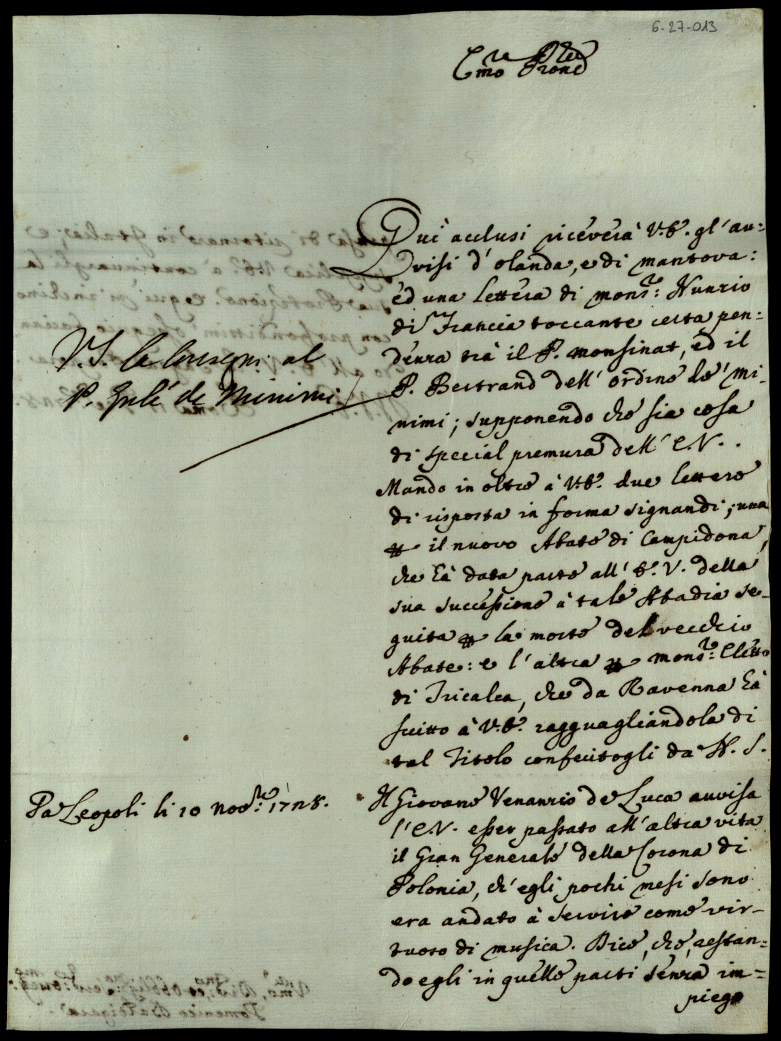 6-27-013
E.mo Pro̅ne
Qui acclusi riceverà V.E. gl' av-
visi d'olanda, e di mantova:
ed una Lettera di mons.r Nunzio
di Francia toccante certa pen-
denza trà il P. Monsinat, ed il
P. Bertrand dell' ordine de' Mi-
nimi; supponendo che sia cosa
di special premura dell' E.V.
Mando in oltre à V.E. due lettere
di risposta in forma signandi; una
per il nuovo Abate di Campidona,
che hà data parte all' E.V. della
sua successione à tale Abadia se-
guita per la morte del vecchio
Abate: e l'altra per mons.r Eletto
di Tricalea, che da Ravenna hà
scritto à V.E. ragguagliandola di
tal Titolo conferitogli da N.S.
Il Giovane Venanzio de Luca avvisa
l'E.V. esser passato all' altra vita
il Gran Generale della Corona di
Polonia, ch' egli pochi mesi sono
era andato à servire come vir-
tuoso di musica. Dice, che restan-
do egli in quelle parti senza im-
piego
V.S. la consegni al
P. de Minimi
Da Leopoli li 10 Nov.re 1728.